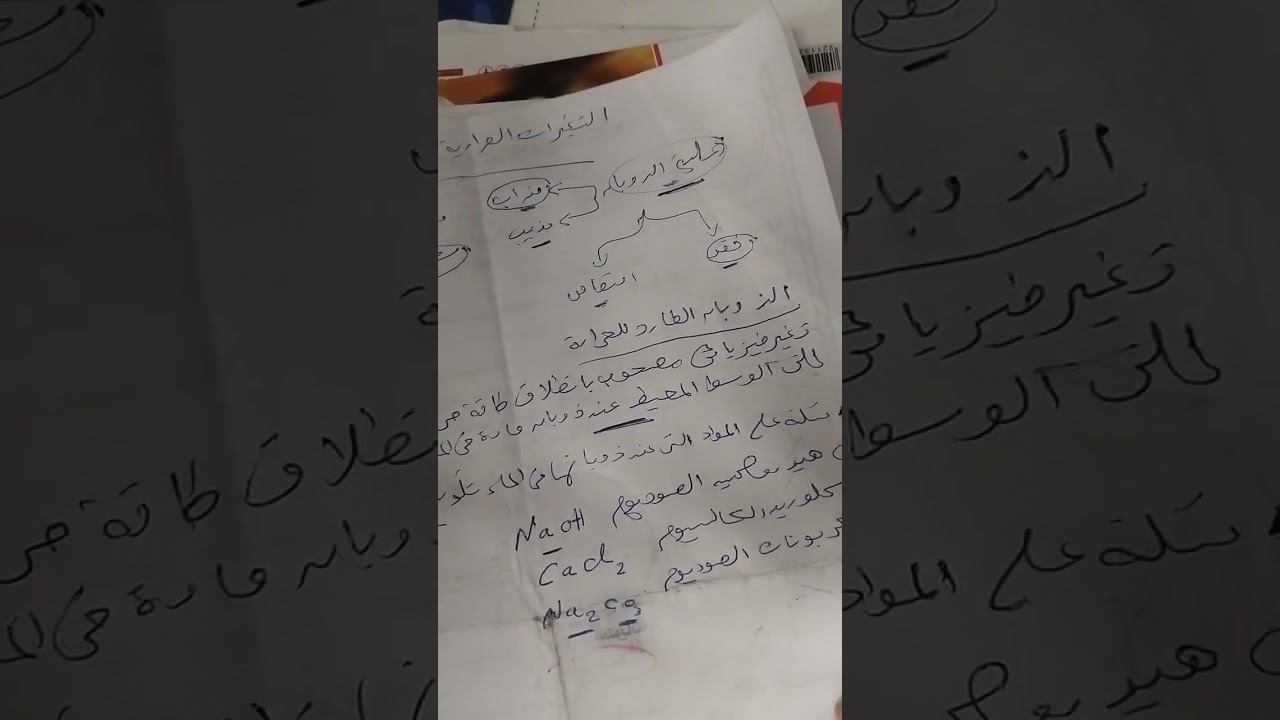 التغيرات الحرارية
عملية الذوبان
مذاب
مذيب
فقد
امتصاص
الذوبان الطارد للحرارة
تغير فيزيائى مصحوب بانطلاق طاقة حر
للى الوسط المحيط عند ذوبان مادة فى الم
امثلة على المواد التى عند ذوبانها فى الماء تكون
هيدروكسيد الصوديوم NaOH
كلوريد الكالسيوم CaCl2
كربونات الصوديوم Na2CO3